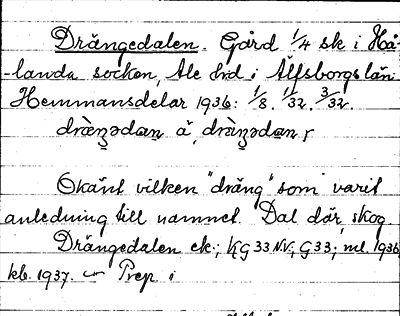 Drängedalen. Gård 1/4 sk i Hå-
-landa socken, Ale hrd i Älfsborgs län
Hemmansdelar 1936: 1/8. 1/32. 3/32.
Okänt vilken "dräng" som varit
anledning till namnet. Dal där, skog
Drängedalen ek.; KG 33 NV; G 33; ml. 1936
kb. 1937. Prep i